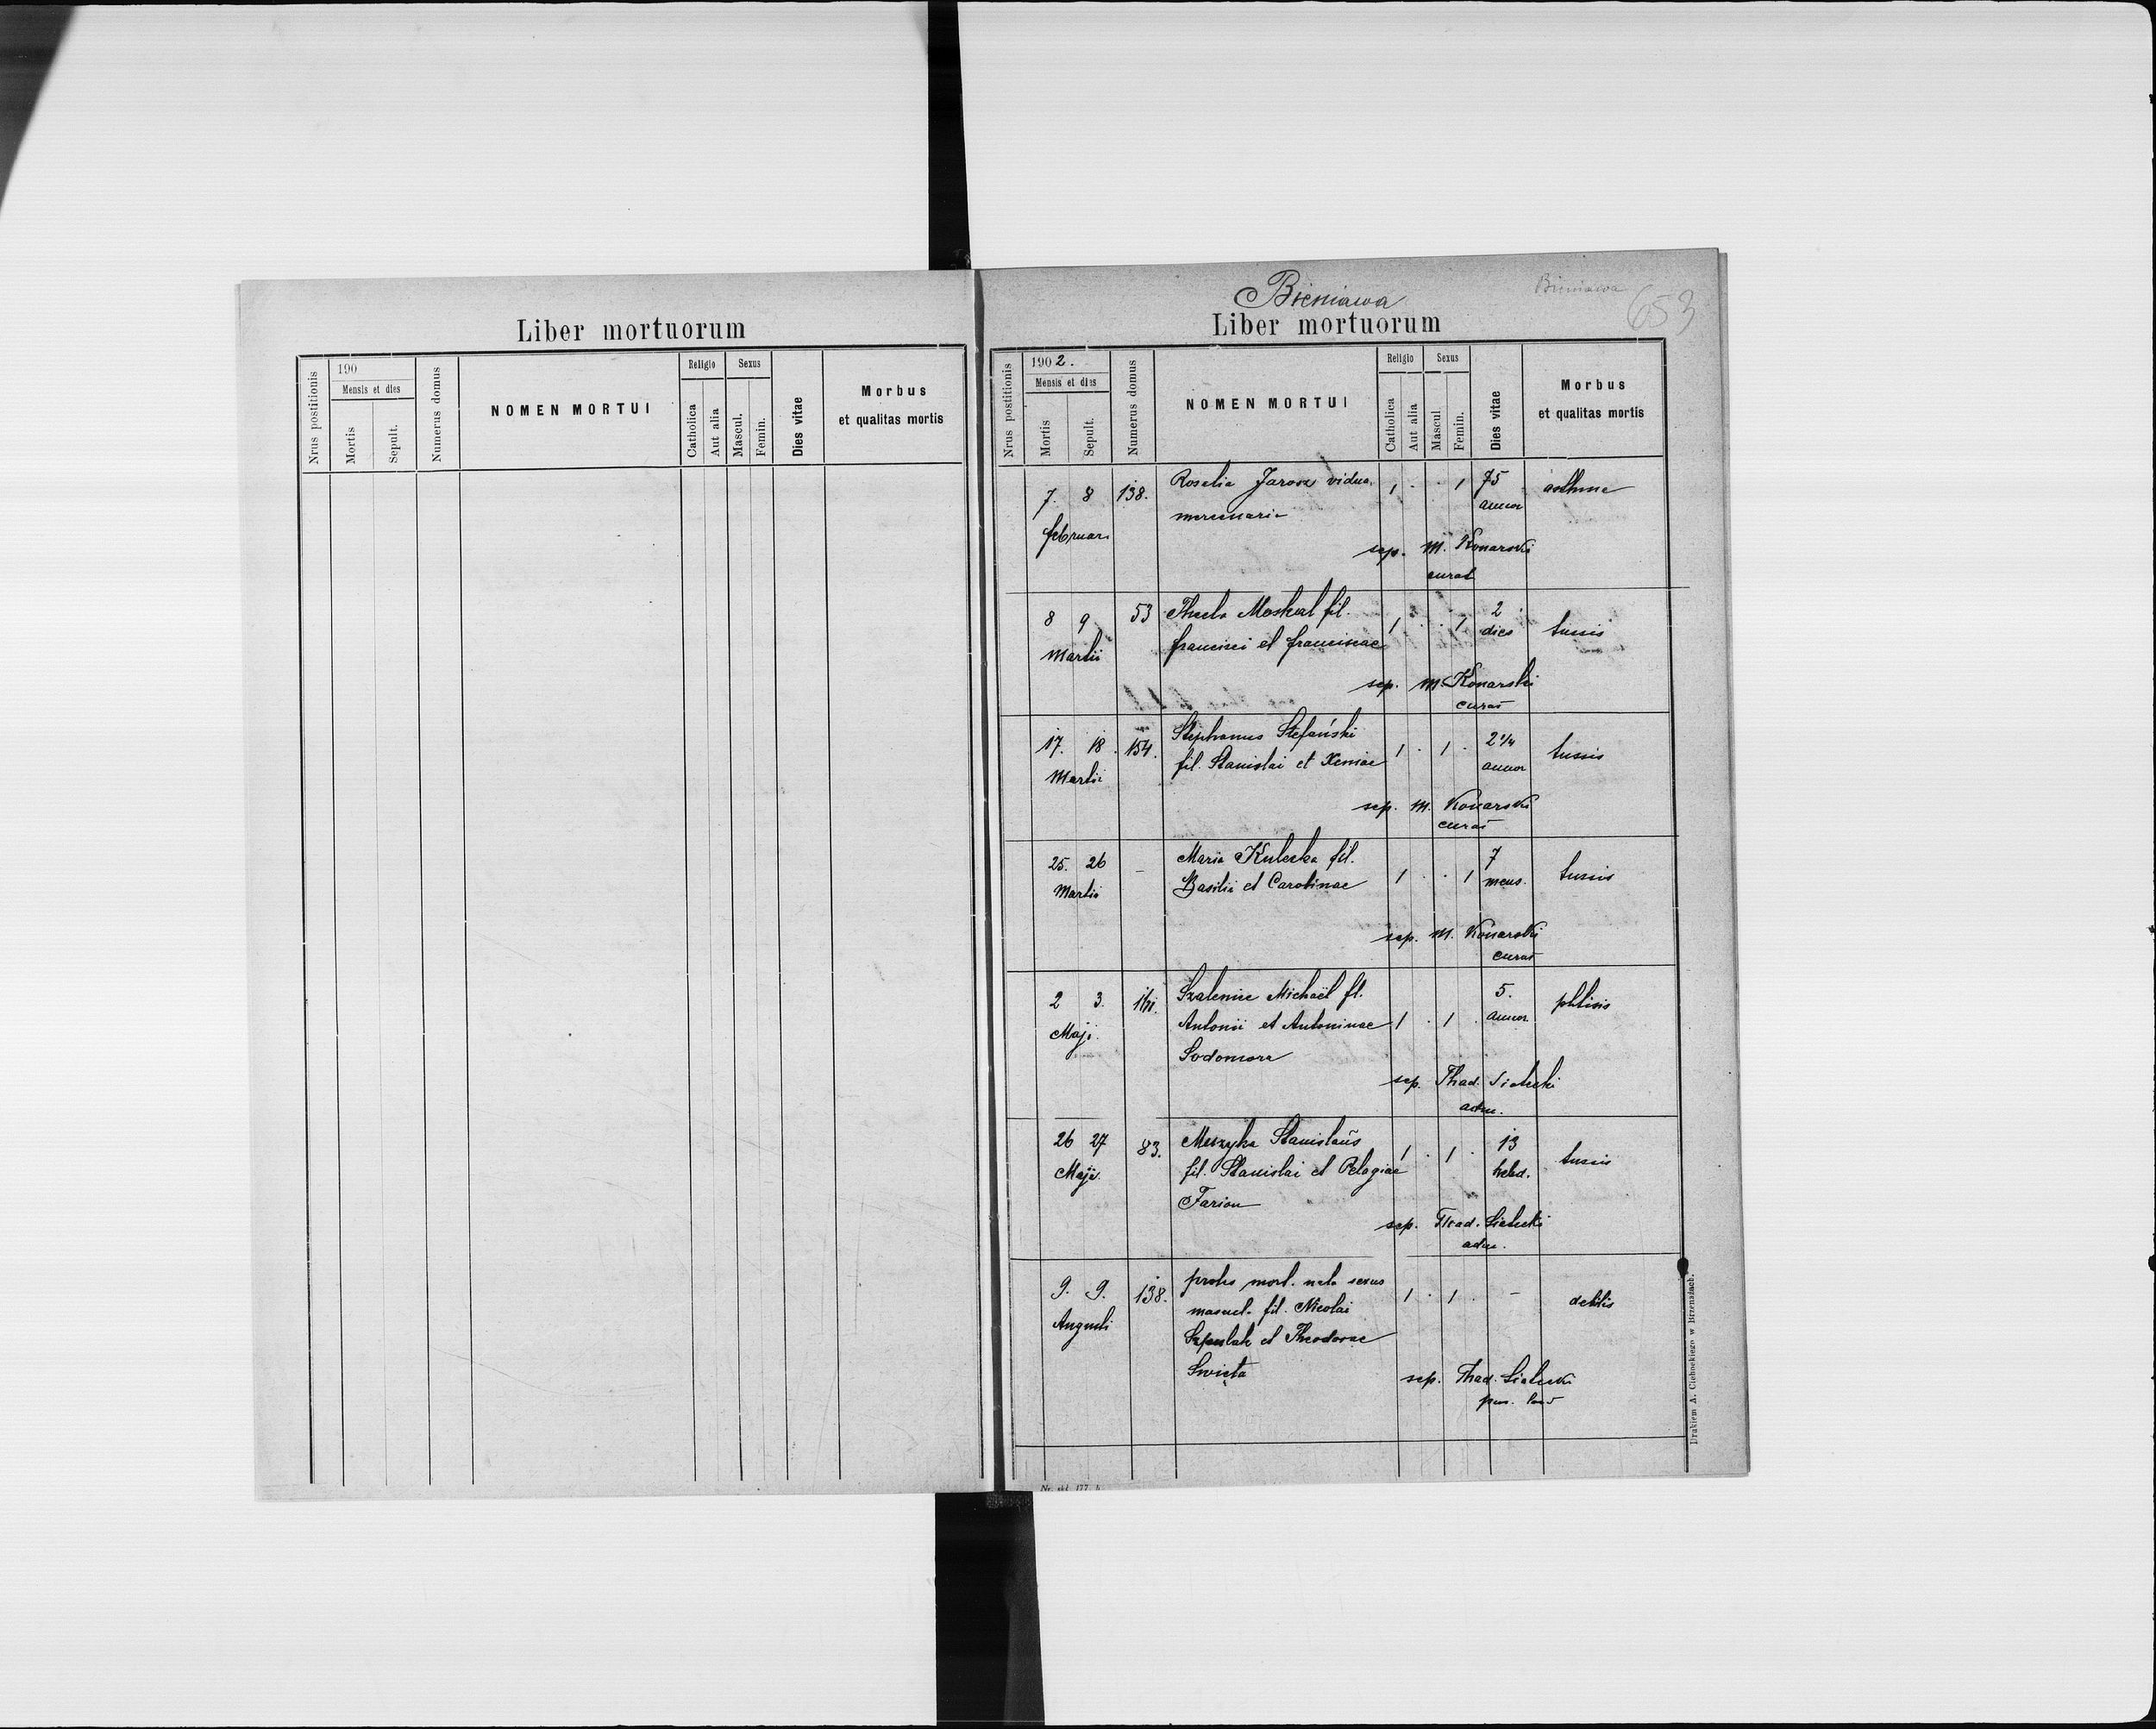 Liber mortuorum
Nrus postitionis
190
Mensis et dies
Mortis
Sepult.
Numerus domus
NOMEN MORTUI
Religio
Catholica
Aut alia
Sexus
Mascul.
Femin.
Dies vitae
Morbus
et qualitas mortis
Bieniawa
Bieniawa
653
Liber mortuorum
Nrus postitionis
1902.
Mensis et dies
Mortis
Sepult.
Numerus domus
NOMEN MORTUI
Religio
Catholica
Aut alia
Sexus
Mascul.
Femin.
Dies vitae
Morbus
et qualitas mortis
7. 8 138. Rosalia Jarosz vidua 1 · · 1 75 asthma
februari mercenaria annor
sep. M. Konarski
curat
8 9 53 Thecla Moskal fil. 1 · · 1 2 tussis
Martii francisci et franciscae dies
sep. M. Konarski
curat
17. 18. 154. Stephanus Stefański 1 · 1 · 2 1/4 tussis
Martii fil. Stanislai et Xeniae annor
sep. M. Konarski
curat
25. 26 - Maria Kuleska fil. 1 · · 1 7 tussis
Martii Basilii et Carolinae mens.
sep. M. Konarski
curat
2 3. Michaël fil. 5. phtisis
Maji Antonii et Antoninae 1 · 1 · annor
Sodomora
sep. Thad. Sialecki
adm.
26 27 83. Stanislaus 1 · 1 · 13 tussis
Maji fil. Stanislai et Pelagiae hebd.
Farion
sep. Thad. Sialecki
adm.
9. 9. 138. proles mort. nata sexus 1 · 1 · - debilis
Augusti mascul. fil. Nicolai
et Theodorae
Swięta
sep. Thad. Sialecki
Drukiem A. Cichockiego w Brzeżanach.